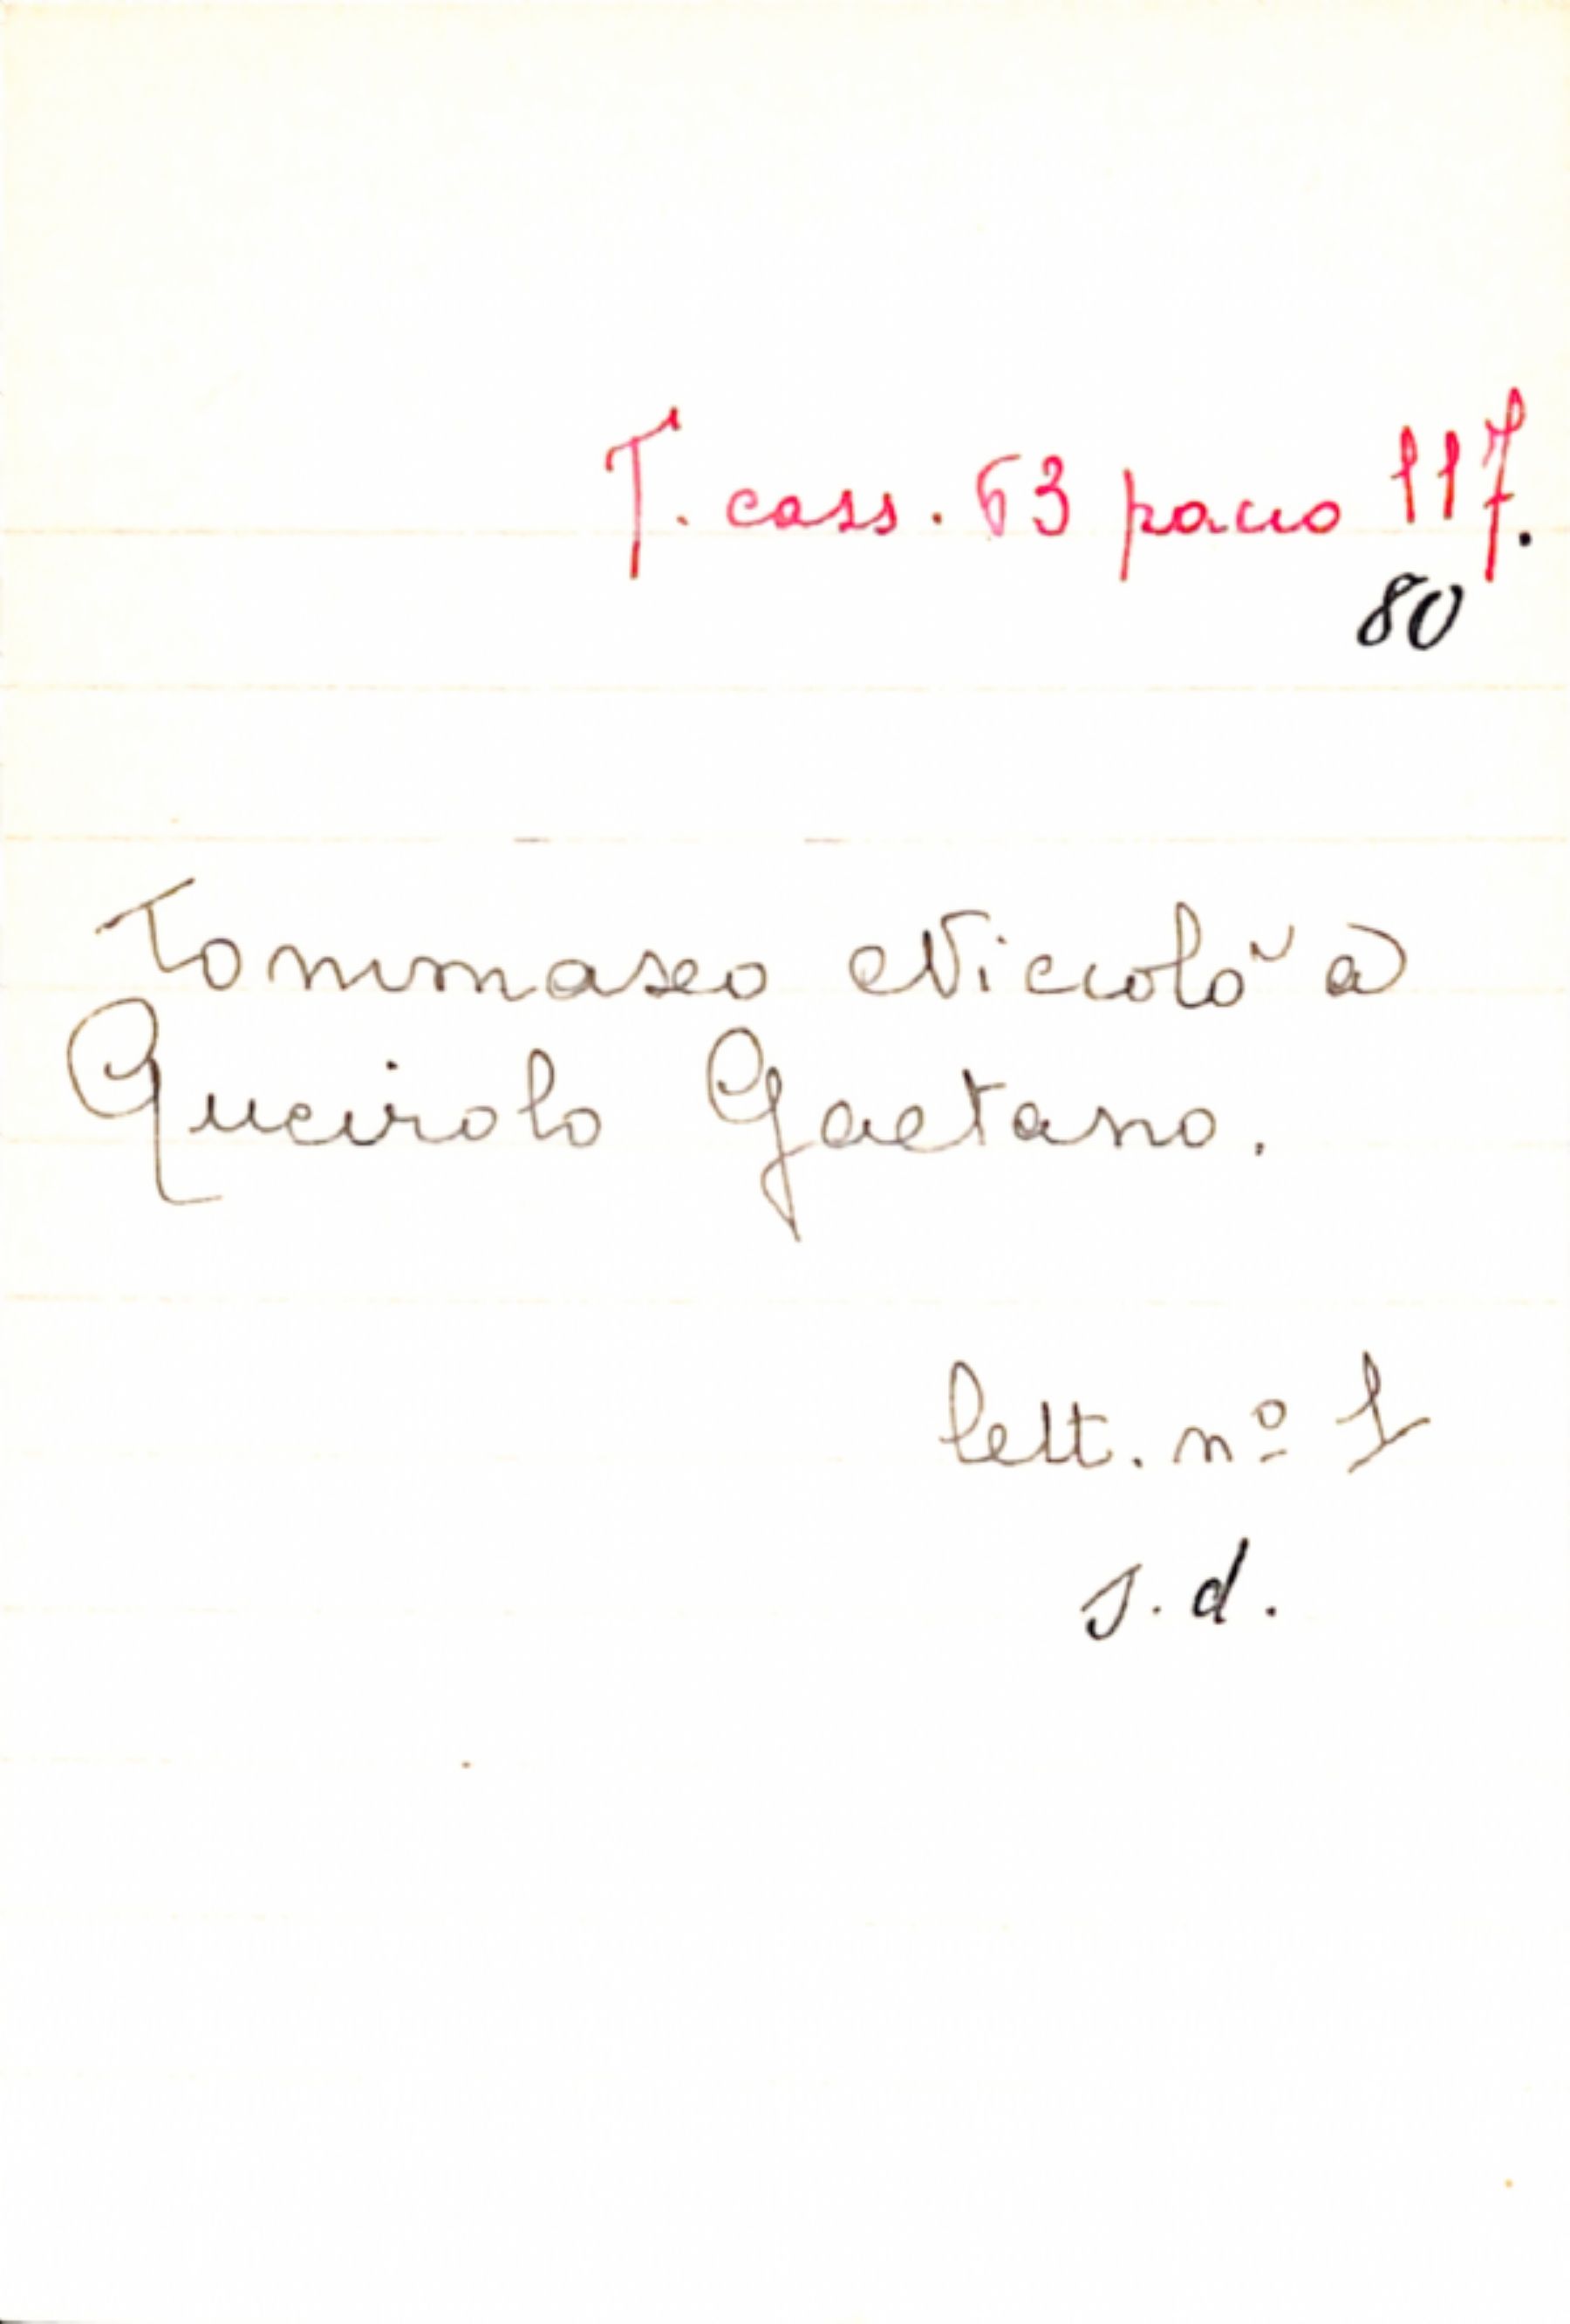 T. cass. 63 pacco 117.
80
Tommaseo Niccolò a
Queirolo Gaetano.
lett. nº 1
s. d.